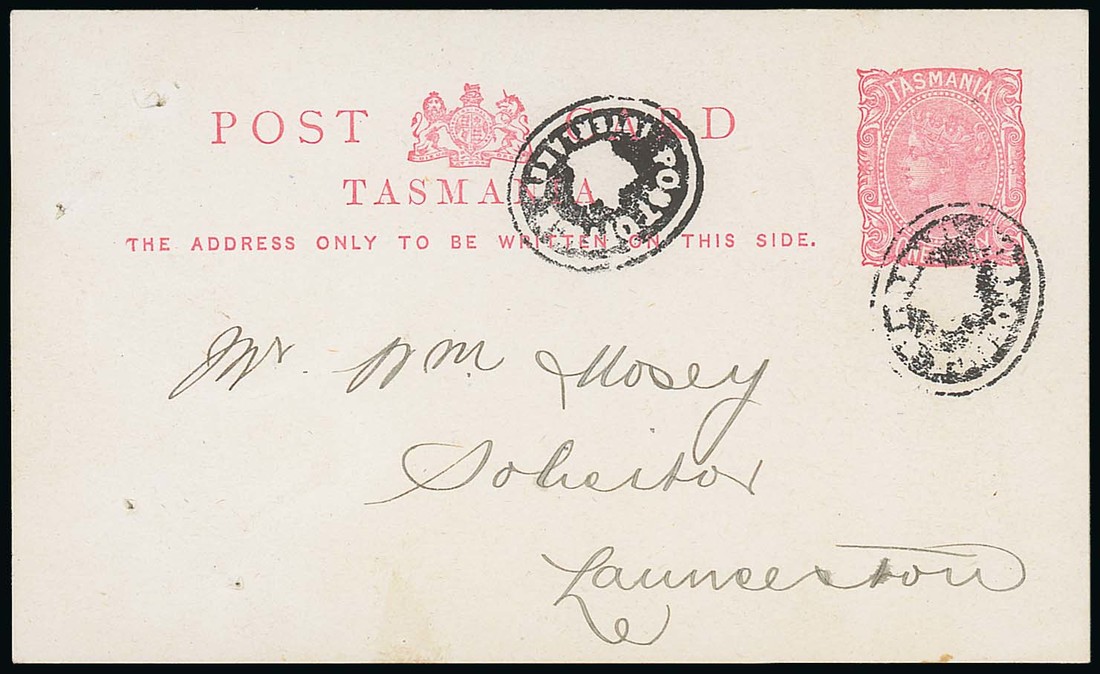 POST CARD
TASMANIA
THE ADDRESS ONLY TO BE WRITTEN ON THIS SIDE.
TASMANIA
POST
Mr Wm Mosey
Solicitor
Launceston